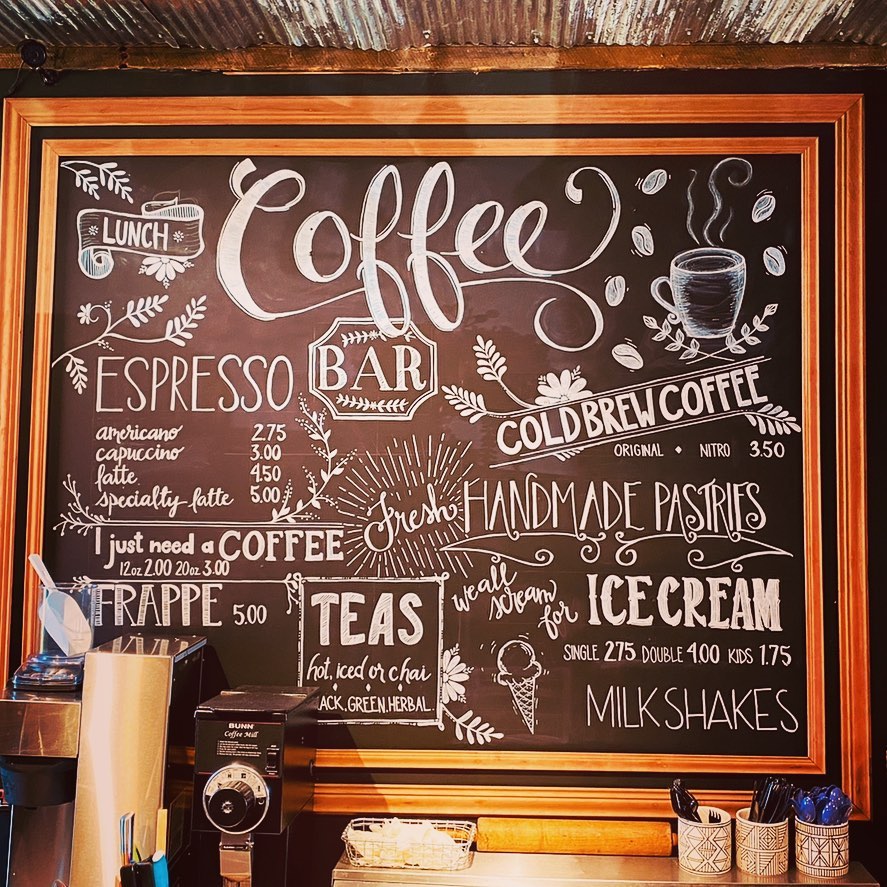 LUNCH
Coffee
BAR
ESPRESSO
americano 2.75
capuccino 3.00
latte 4.50
specialty latte 5.00
I just need a COFFEE
12oz 2.00 20oz 3.00
FRAPPE 5.00
COLD BREW COFFEE
ORIGINAL • NITRO 3.50
Fresh HANDMADE PASTRIES
TEAS
hot, iced or chai
GREEN, HERBAL.
we all
scream
for
ICE CREAM
SINGLE 2.75 DOUBLE 4.00 KIDS 1.75
MILKSHAKES
BUNN
Coffee Mill